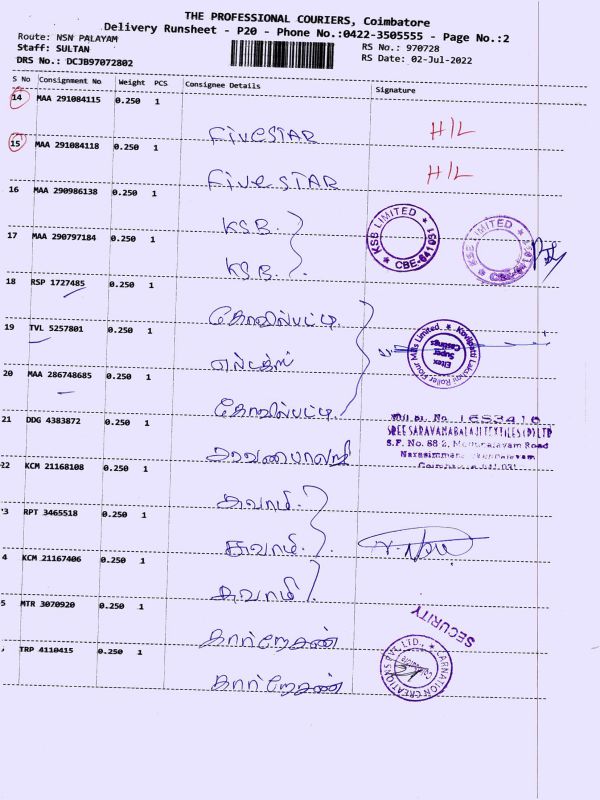 THE PROFESSIONAL COURIERS, Coimbatore
Delivery Runsheet - P20 - Phone No.:0422-3505555 - Page No.:2
Route: NSN PALAYAM
Staff: SULTAN
DRS No.: DCJB97072802
RS No.: 970728
RS Date: 02-Jul-2022
S No Consignment No Weight PCS Consignee Details Signature
14 MAA 291084115 0.250 1
FiveSTAR H/L
15 MAA 291084118 0.250 1
Five STAR H/L
16 MAA 290986138 0.250 1
KSB.
KSB LIMITED CBE-641031
KSB LIMITED
17 MAA 290797184 0.250 1
KSB.
18 RSP 1727485 0.250 1
கோவில்பட்டி.
19 TVL 5257801 0.250 1
Kovilpatti Lakshmi Roller Flour Mills Limited.
Eltex Super Castings
20 MAA 286748685 0.250 1
கோவில்பட்டி.
21 DDG 4383872 0.250 1
சரவணபாலாஜி
SREE SARAVANABALAJI TEXTILES (P) LTD
S.F. No. 88 2, Road
22 KCM 21168108 0.250 1
சுவாமி.
3 RPT 3465518 0.250 1
சுவாமி.
4 KCM 21167406 0.250 1
சுவாமி.
5 MTR 3070920 0.250 1
SECURITY
CARNATION CREATIONS PVT. LTD.,
TRP 4110415 0.250 1